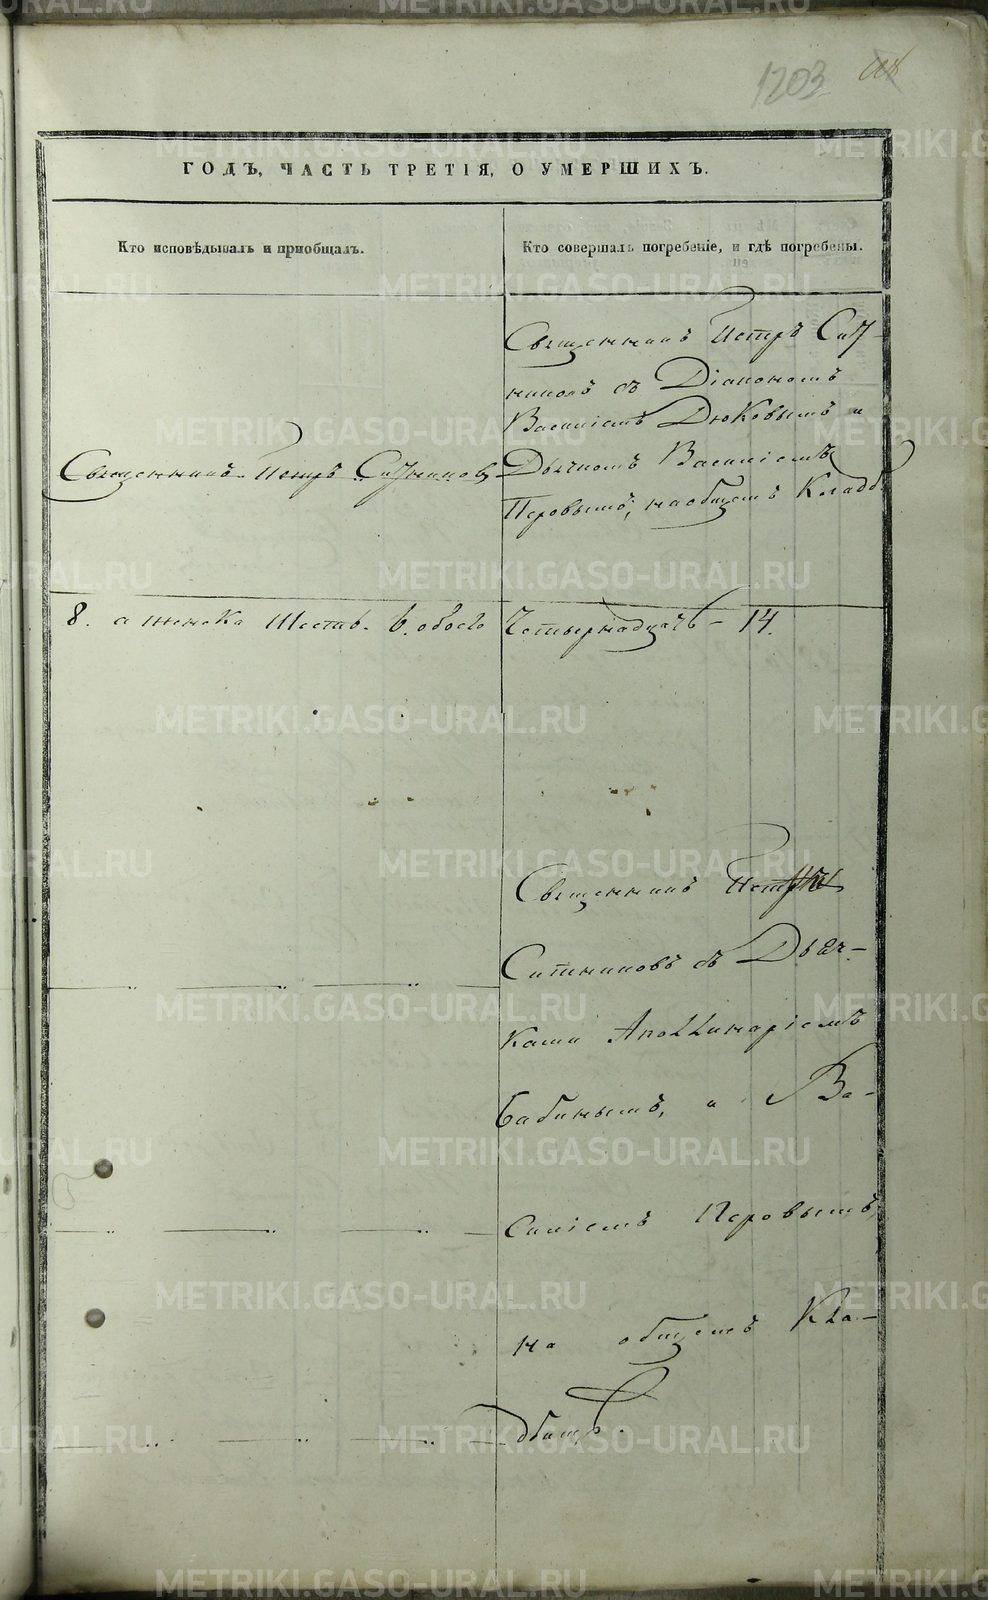 1203
ГОДЪ, ЧАСТЬ ТРЕТІЯ, О УМЕРШИХЪ.
Кто исповѣдывалъ и пріобщалъ.
Кто совершалъ погребеніе, и гдѣ погребены.
Священникъ Петръ Сит-
никовъ съ Діакономъ
Василіемъ Дюковымъ и
Священникъ Петръ Ситниковъ
Дьячкомъ Василіемъ
Перовымъ; на общемъ Кладб.
8. а женска Шесть. 6. обоего
Четырнадцать - 14.
Священникъ Петръ
Ситниковъ съ Дьяч-
ками Аполлинаріемъ
Бабинымъ, и Ва-
силіемъ Перовымъ
на общемъ Кла-
дбищѣ.
METRIKI.GASO-URAL.RU